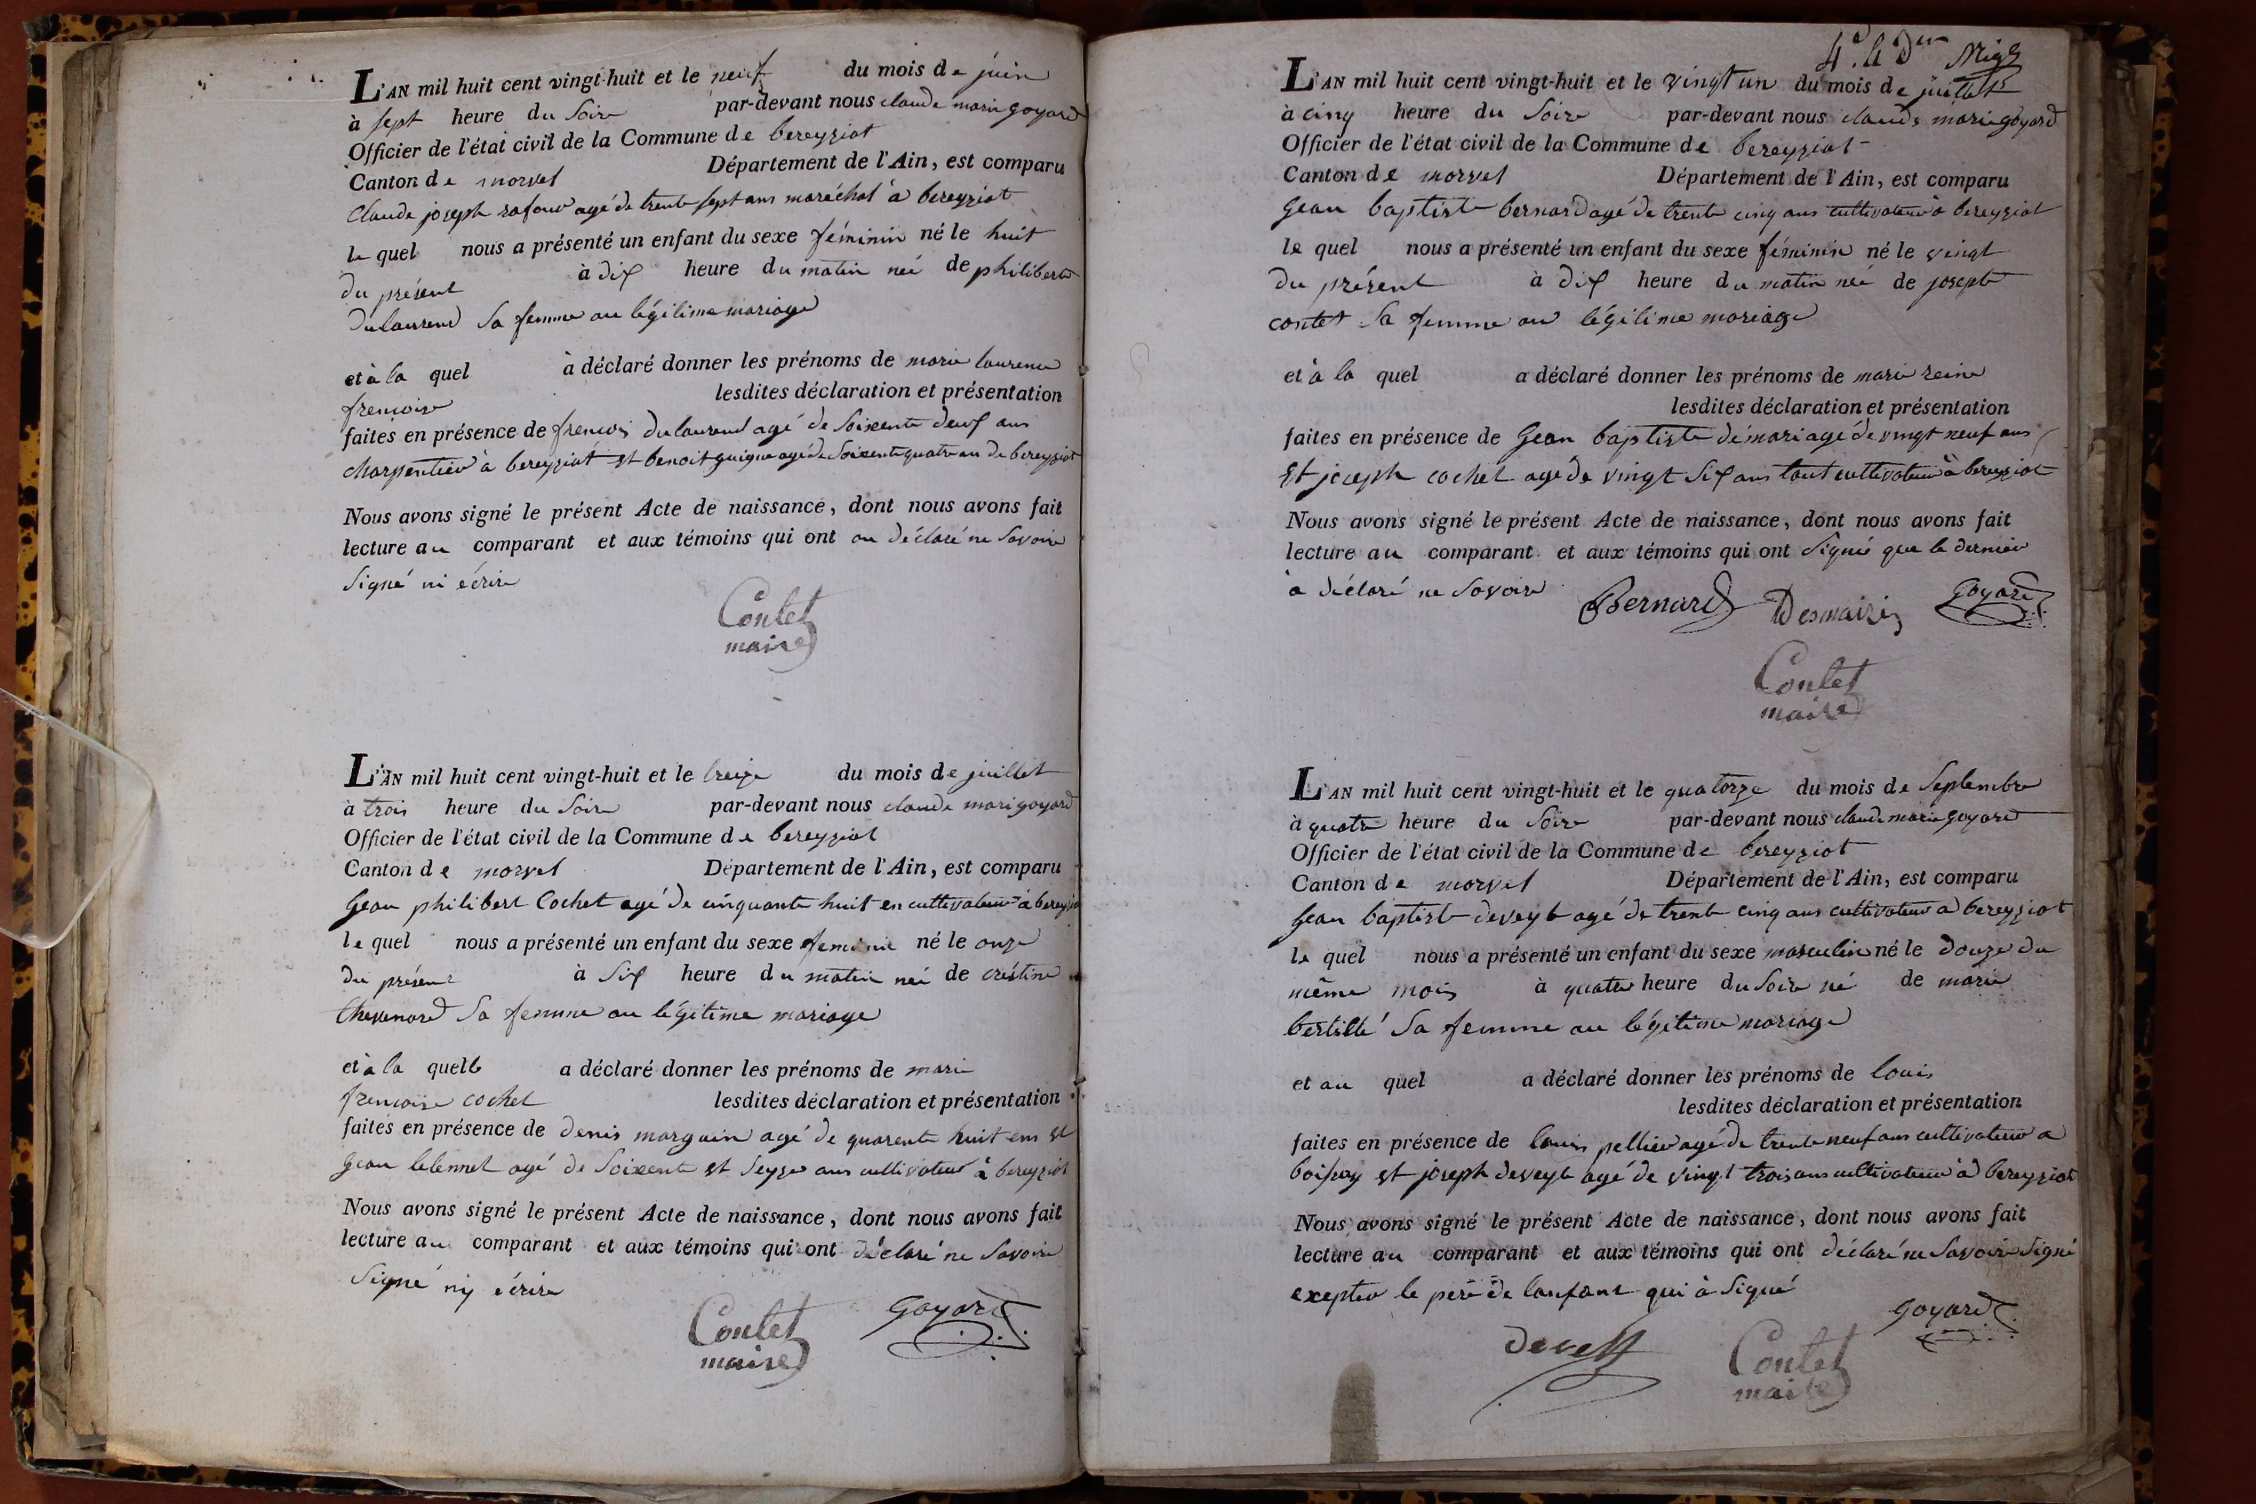 L'AN mil huit cent vingt-huit et le neuf du mois de juin
à sept heure du Soire par-devant nous claude marie goyard
Officier de l'état civil de la Commune de bereyziat
Canton de morvel Département de l'Ain, est comparu
Claude joseph rafour agé de trente sept ans maréchal à bereyziat
le quel nous a présenté un enfant du sexe féminin né le huit
du présent à dix heure du matin née de philiberte
dulaurend Sa femme au légitime mariage
et à la quel à déclaré donner les prénoms de marie laurence
frencoise lesdites déclaration et présentation
faites en présence de frencois dulaurend agé de Soixente deux ans
charpentier à bereyziat et benoit guigue agé de Soixente quatre an de bereyziat
Nous avons signé le présent Acte de naissance, dont nous avons fait
lecture au comparant et aux témoins qui ont on déclaré ne Savoire
Signé ni écrire
Contet
maire
L'AN mil huit cent vingt-huit et le treize du mois de juillet
à trois heure du Soire par-devant nous claude mari goyard
Officier de l'état civil de la Commune de bereyziat
Canton de morvel Département de l'Ain, est comparu
Gean philibert Cochet agé de cinquante huit en cultivateur à bereyziat
le quel nous a présenté un enfant du sexe feminin né le onze
du présent à Six heure du matin née de cristine
Chevenard Sa femme au légitime mariage
et à la quelle a déclaré donner les prénoms de marie
frencoise cochet lesdites déclaration et présentation
faites en présence de denis morguin agé de quarente huit ens et
Gean agé de Soixente et Seyze ans cultivateur à bereyziat
Nous avons signé le présent Acte de naissance, dont nous avons fait
lecture au comparant et aux témoins qui ont déclaré ne Savoire
Signé ny écrire
Contet goyard
maire
4e. et Der
L'AN mil huit cent vingt-huit et le vingt un du mois de juillet
à cinq heure du Soire par-devant nous claude marie goyard
Officier de l'état civil de la Commune de bereyziat
Canton de morvel Département de l'Ain, est comparu
Gean baptiste bernard agé de trente cinq ans cultivateur à bereyziat
le quel nous a présenté un enfant du sexe féminin né le vingt
du présent à dix heure du matin née de josepte
contet Sa femme au légitime mariage
et à la quel a déclaré donner les prénoms de marie reine
lesdites déclaration et présentation
faites en présence de Gean baptiste démari agé de vingt neuf ans
Et joseph cochet agé de vingt Six ans tout cultivateur à bereyziat
Nous avons signé le présent Acte de naissance, dont nous avons fait
lecture au comparant et aux témoins qui ont Signié que le dernier
à déclaré ne Savoire
Bernard Desmaris goyard
Contet
maire
L'AN mil huit cent vingt-huit et le quatorze du mois de Septembre
à quatre heure du Soire par-devant nous claude marie goyard
Officier de l'état civil de la Commune de bereyziat
Canton de morvel Département de l'Ain, est comparu
Gean baptiste deveyle agé de trente cinq ans cultivateur à bereyziat
le quel nous a présenté un enfant du sexe masculin né le douze du
même mois à quatre heure du Soire né de marie
Sa femme au légitime mariage
et au quel a déclaré donner les prénoms de louis
lesdites déclaration et présentation
faites en présence de louis pellier agé de trente neuf ans cultivateur a
boissey et joseph deveyle agé de vingt trois ans cultivateur à bereyziat
Nous avons signé le présent Acte de naissance, dont nous avons fait
lecture au comparant et aux témoins qui ont déclaré ne Savoire Signé
exepter le pere de lanfant qui à Signé
goyard
Contet
maire